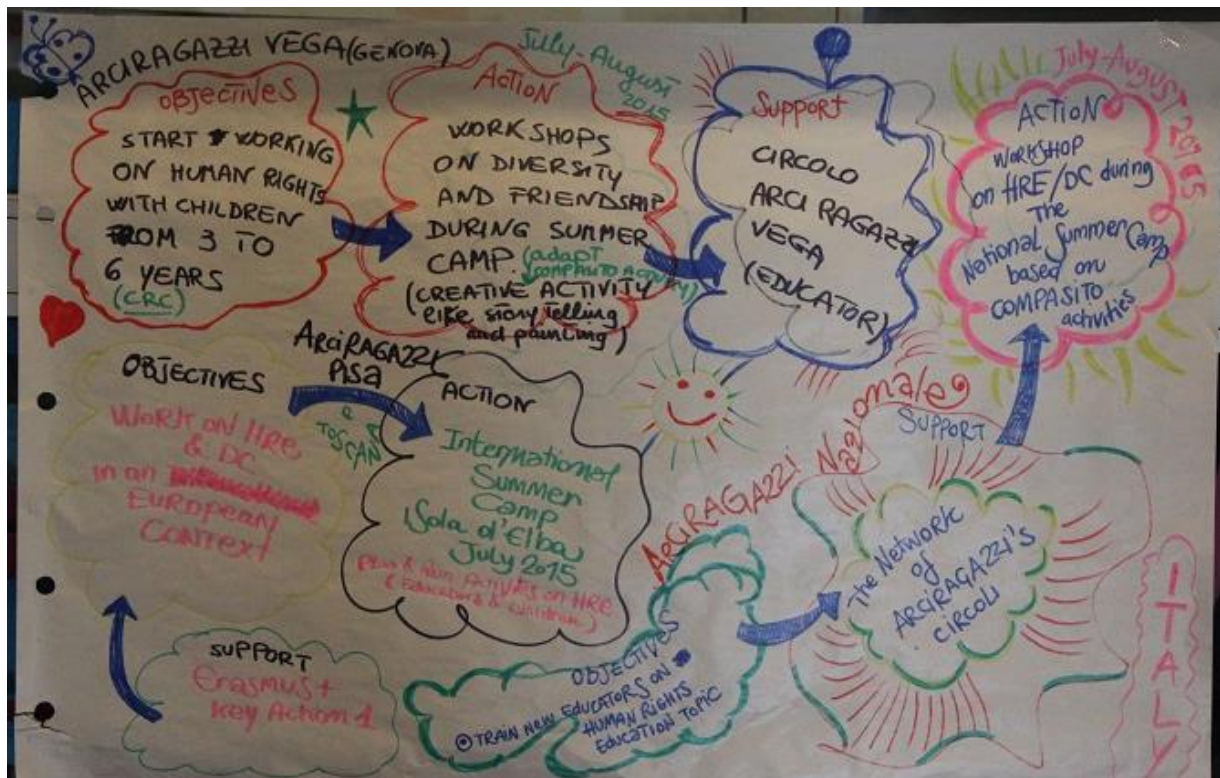 ARCIRAGAZZI VEGA (GENOVA)
OBJECTIVES
START WORKING
ON HUMAN RIGHTS
WITH CHILDREN
FROM 3 TO
6 YEARS
(CRC)
July-August
2015
ACTION
WORKSHOPS
ON DIVERSITY
AND FRIENDSHIP
DURING SUMMER
CAMP. (adapt
COMPASITO ACTIVITY)
(CREATIVE ACTIVITY
like story telling
and painting)
Support
CIRCOLO
ARCI RAGAZZI
VEGA
(EDUCATOR)
July-August 2015
ACTION
WORKSHOP
on HRE/DC during
The
National Summer Camp
based on
COMPASITO
activities
ARCIRAGAZZI
PISA
e
TOSCANA
OBJECTIVES
WORK ON HRE
& DC
in an
EUROPEAN
CONTEXT
ACTION
International
Summer
Camp
Isola d'Elba
July 2015
& Run Activities on HRE
Educators & children)
SUPPORT
Erasmus+
Key Action 1
ArciRAGAZZI Nazionale
OBJECTIVES
TRAIN NEW EDUCATORS ON
HUMAN RIGHTS
EDUCATION TOPIC
SUPPORT
The Network
of
ARCIRAGAZZI's
CIRCOLI
ITALY